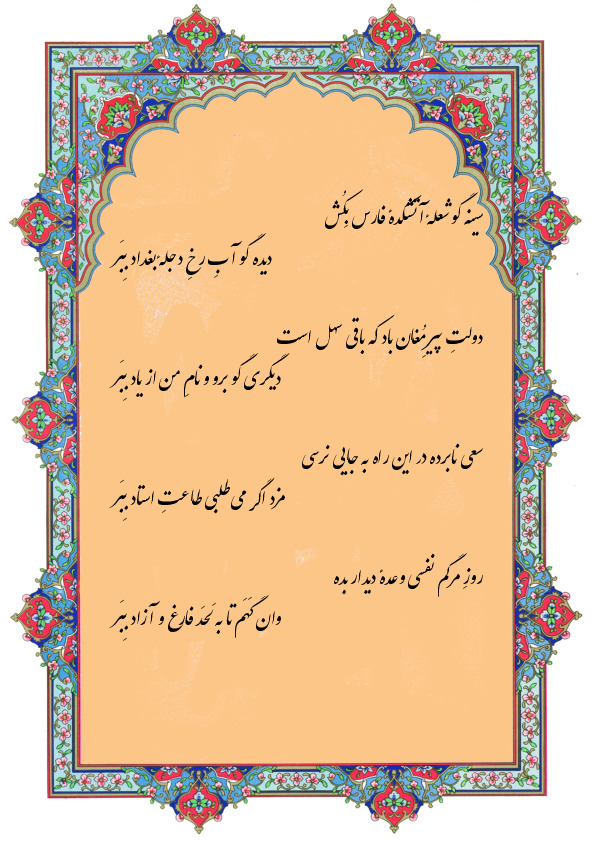 سینه گو شعلهٔ آتشکدهٔ فارس بِکُش
دیده گو آبِ رخِ دجلهٔ بغداد بِبَر
دولتِ پیرِ مُغان باد که باقی سهل است
دیگری گو برو و نامِ من از یاد بِبَر
سعی نابرده در این راه به جایی نرسی
مزد اگر می طلبی طاعتِ استاد بِبَر
روزِ مرگم نفسی وعدهٔ دیدار بده
وان گَهَم تا به لَحَد فارغ و آزاد بِبَر